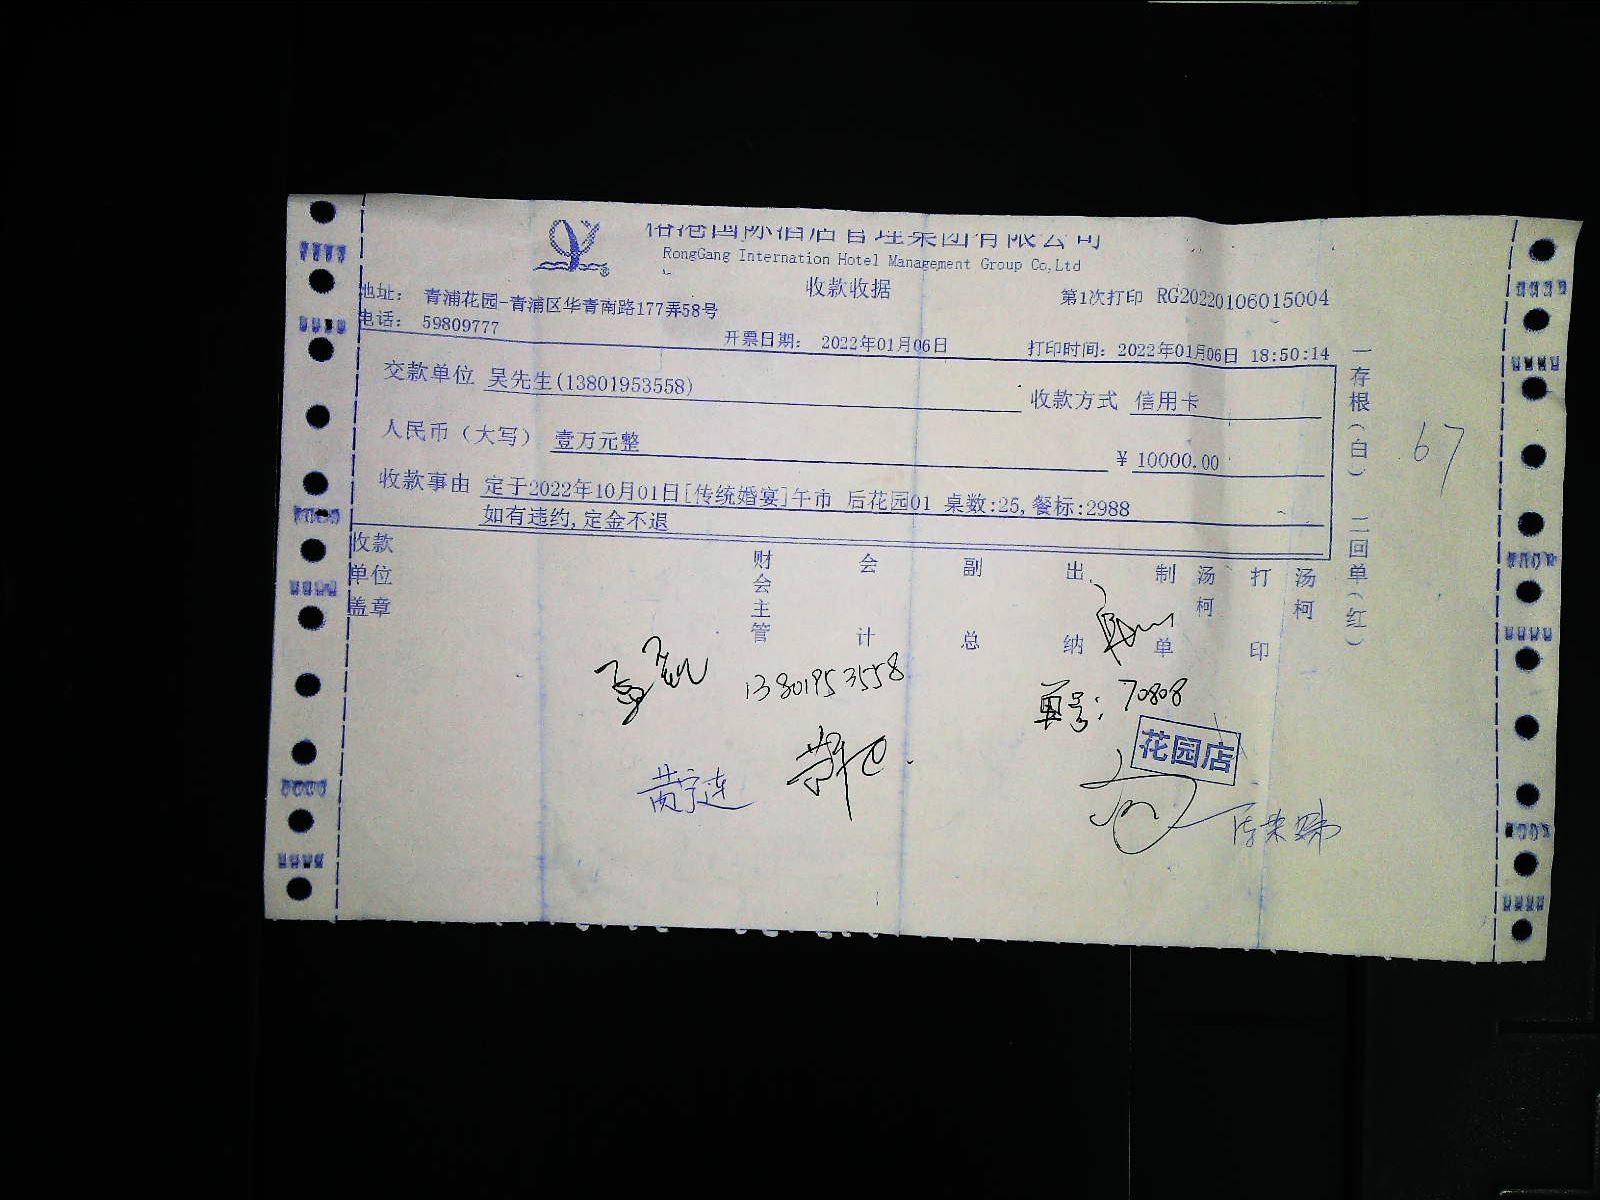 国际酒店管理集团有限公司
RongGang Internation Hotel Management Group Co,Ltd
收款收据
第1次打印 RG20220106015004
地址: 青浦花园-青浦区华青南路177弄58号
电话: 59809777
开票日期: 2022年01月06日 打印时间: 2022年01月06日 18:50:14
交款单位 吴先生(13801953558) 收款方式 信用卡
人民币（大写） 壹万元整 ¥ 10000.00
收款事由 定于2022年10月01日[传统婚宴]午市 后花园01 桌数:25,餐标:2988
如有违约,定金不退
收款单位盖章 财会主管 会计 副总 出纳 制单 汤柯 打印 汤柯
一存根（白） 二回单（红）
67
13801953558
70808
花园店